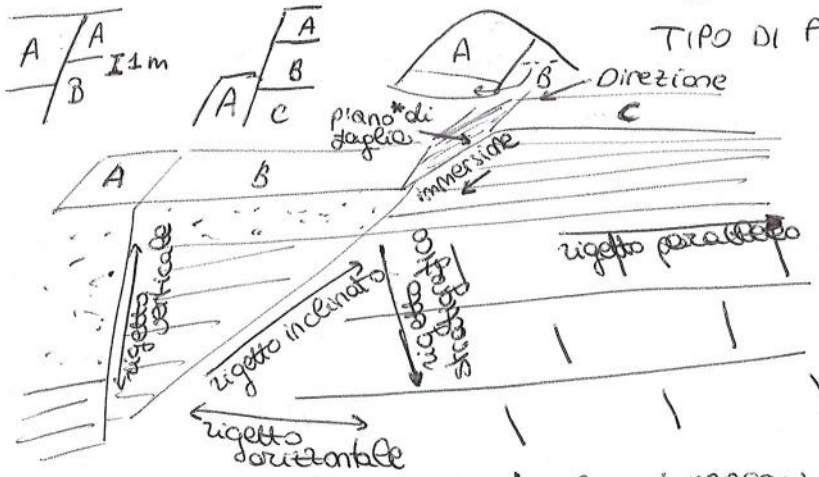 A A
I 1m
B
A
B
A C
A
B
TIPO DI F
Direzione
piano* di
faglia
C
immersione
A B
rigetto
verticale
rigetto inclinato
rigetto
stratigrafico
rigetto parallelo
rigetto
orizzontale